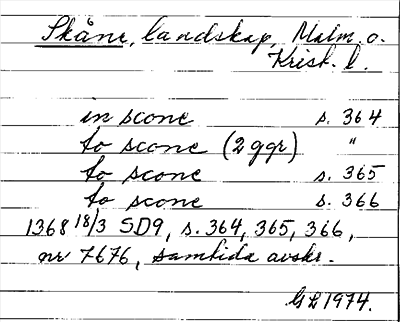 Skåne, landskap, Malm. o.
Krist. l.
in scone s. 364
to scone (2 ggr) "
to scone s. 365
to scone s. 366
1368 18/3 SD9, s. 364, 365, 366,
nr 7676, samtida avskr.
GL 1974.